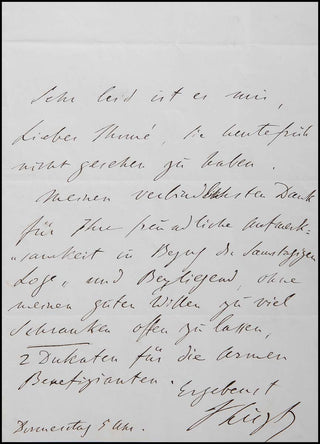 Sehr leid ist es mir,
Lieber Thomé, Sie heute früh
nicht gesehen zu haben.
Meinen verbindlichsten Dank
für Ihre freundliche Aufmerk-
"samkeit in Bezug der Samstagigen
Loge" und Beyliegend, ohne
meinen guten Willen zu viel
Schranken offen zu lassen,
2 Dukaten für die armen
Benefizianten.
Ergebenst
FLiszt
Donnerstag 5 Uhr.